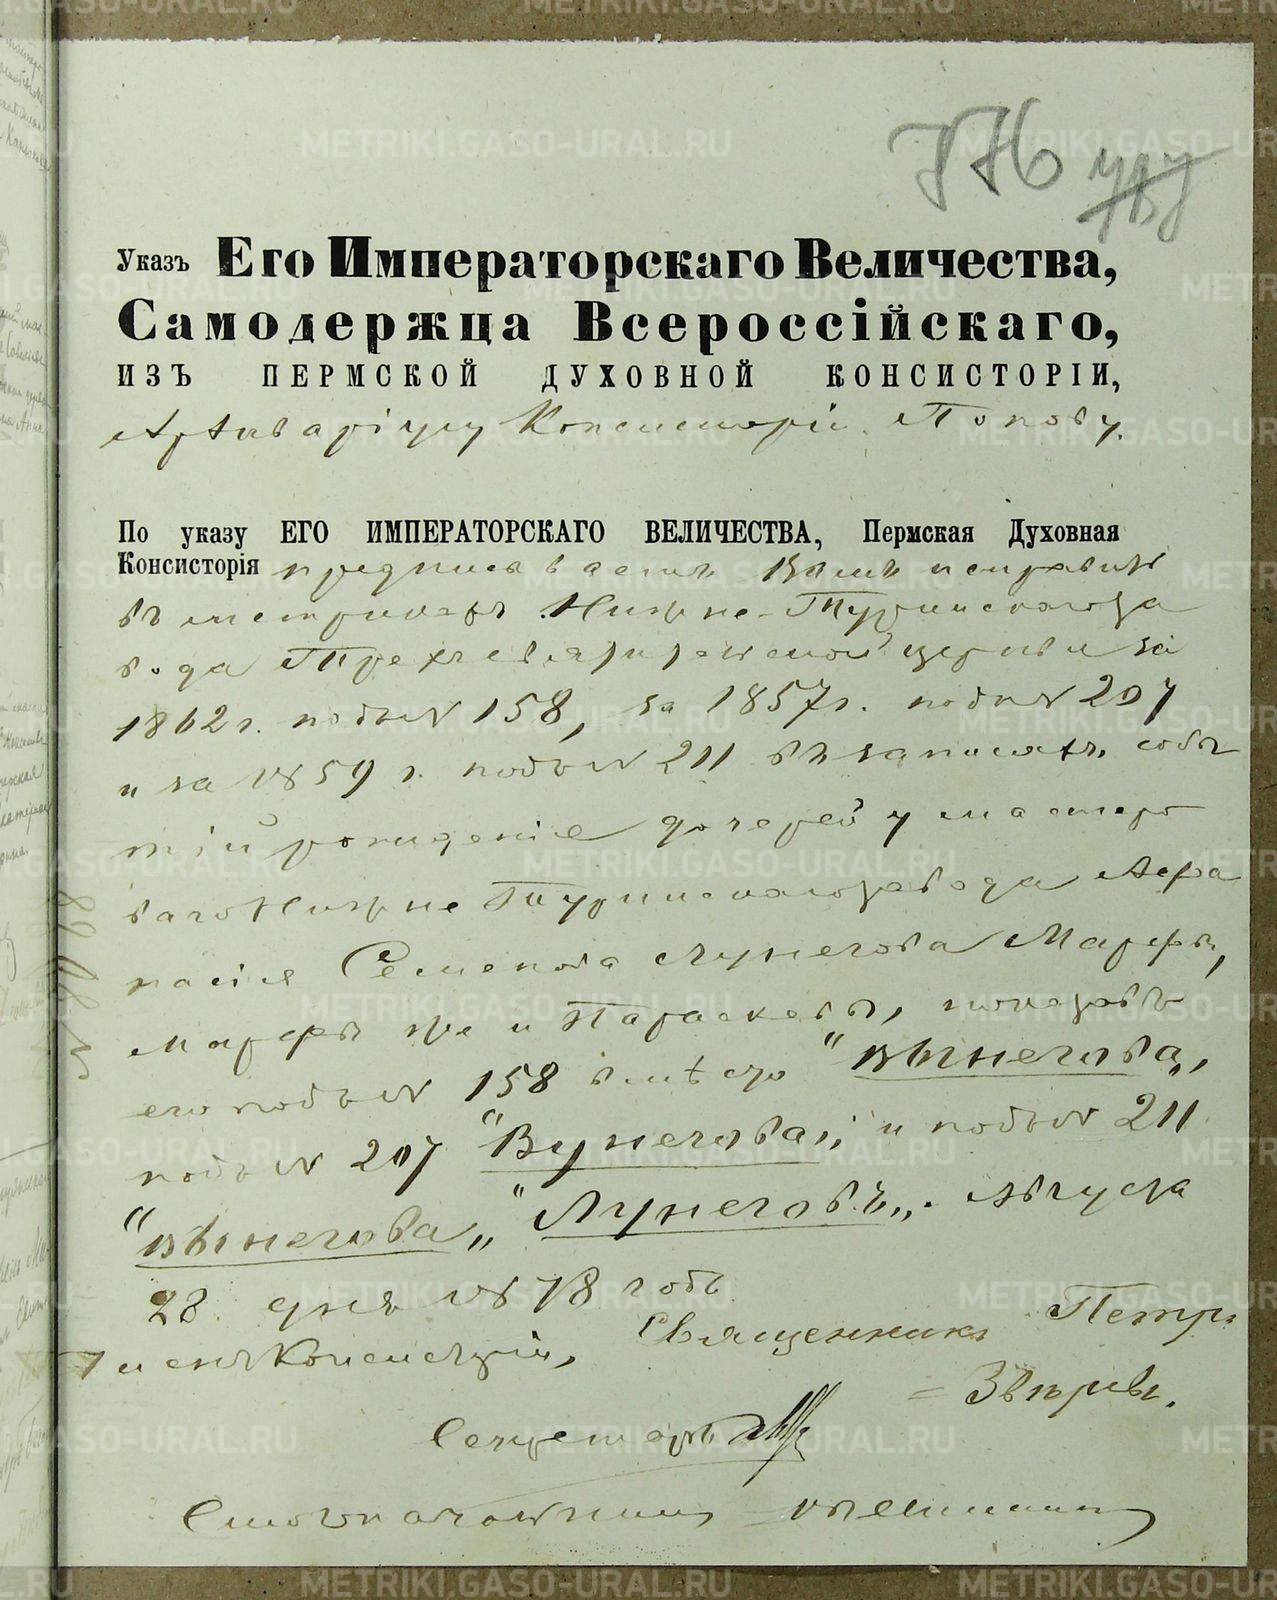 776
Указъ Его Императорскаго Величества,
Самодержца Всероссійскаго,
ИЗЪ ПЕРМСКОЙ ДУХОВНОЙ КОНСИСТОРІИ,
Архиваріусу Консисторіи Попову.
По указу ЕГО ИМПЕРАТОРСКАГО ВЕЛИЧЕСТВА, Пермская Духовная
Консисторія предписываетъ Вамъ исправить
въ метрикахъ Нижне-Туринскаго за
вода Трехсвятительской церкви за
1862 г. подъ № 158, за 1857 г. подъ № 207
и за 1859 г. подъ № 211 въ записяхъ собы
тій рожденіе дочерей у мастеро
ваго Нижне Туринскаго завода Афа
насія Семенова Лунегова Марфы,
Марфы же и Параскевы, показавъ
его подъ № 158 вмѣсто "Вѣнегова",
подъ № 207 "Вунегова" и подъ № 211
"Вѣнегова" "Лунеговъ". Августа
28 дня 1878 года
Членъ Консисторіи, Священникъ Петръ
Звѣревъ.
Секретарь
Столоначальникъ
METRIKI.GASO-URAL.RU